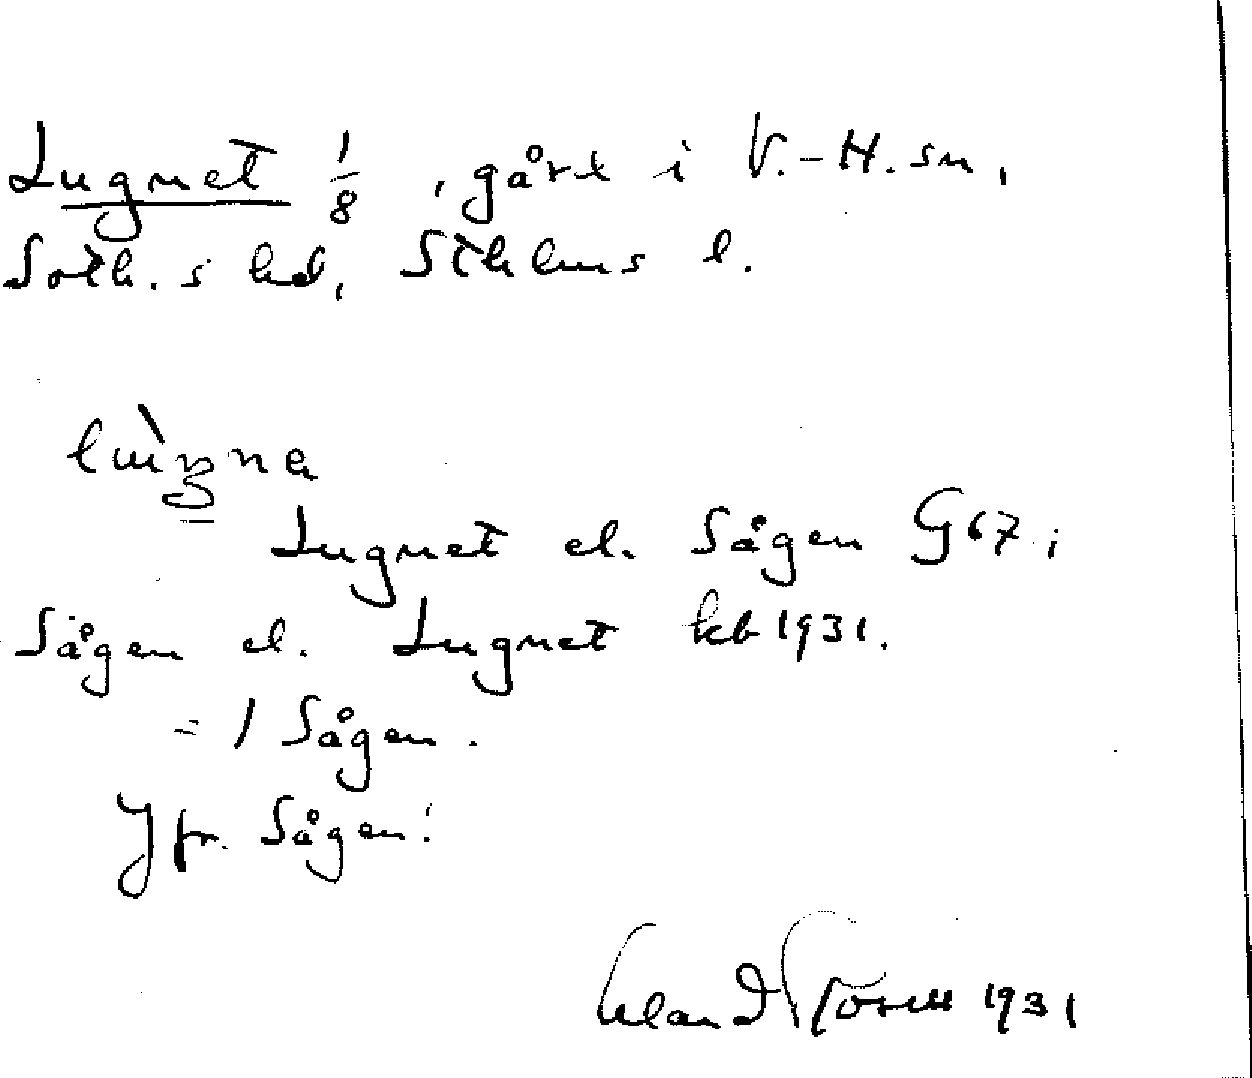 Lugnet 1/8, gård i V.-H. sn,
Soth.s hd, Sthlms l.
Lugnet el. Sågen G67;
Sågen el. Lugnet kb 1931.
= 1 Sågen.
Jfr. Sågen!
1931